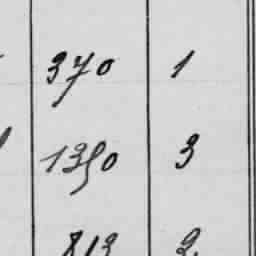 370 1
1350 3
813 2